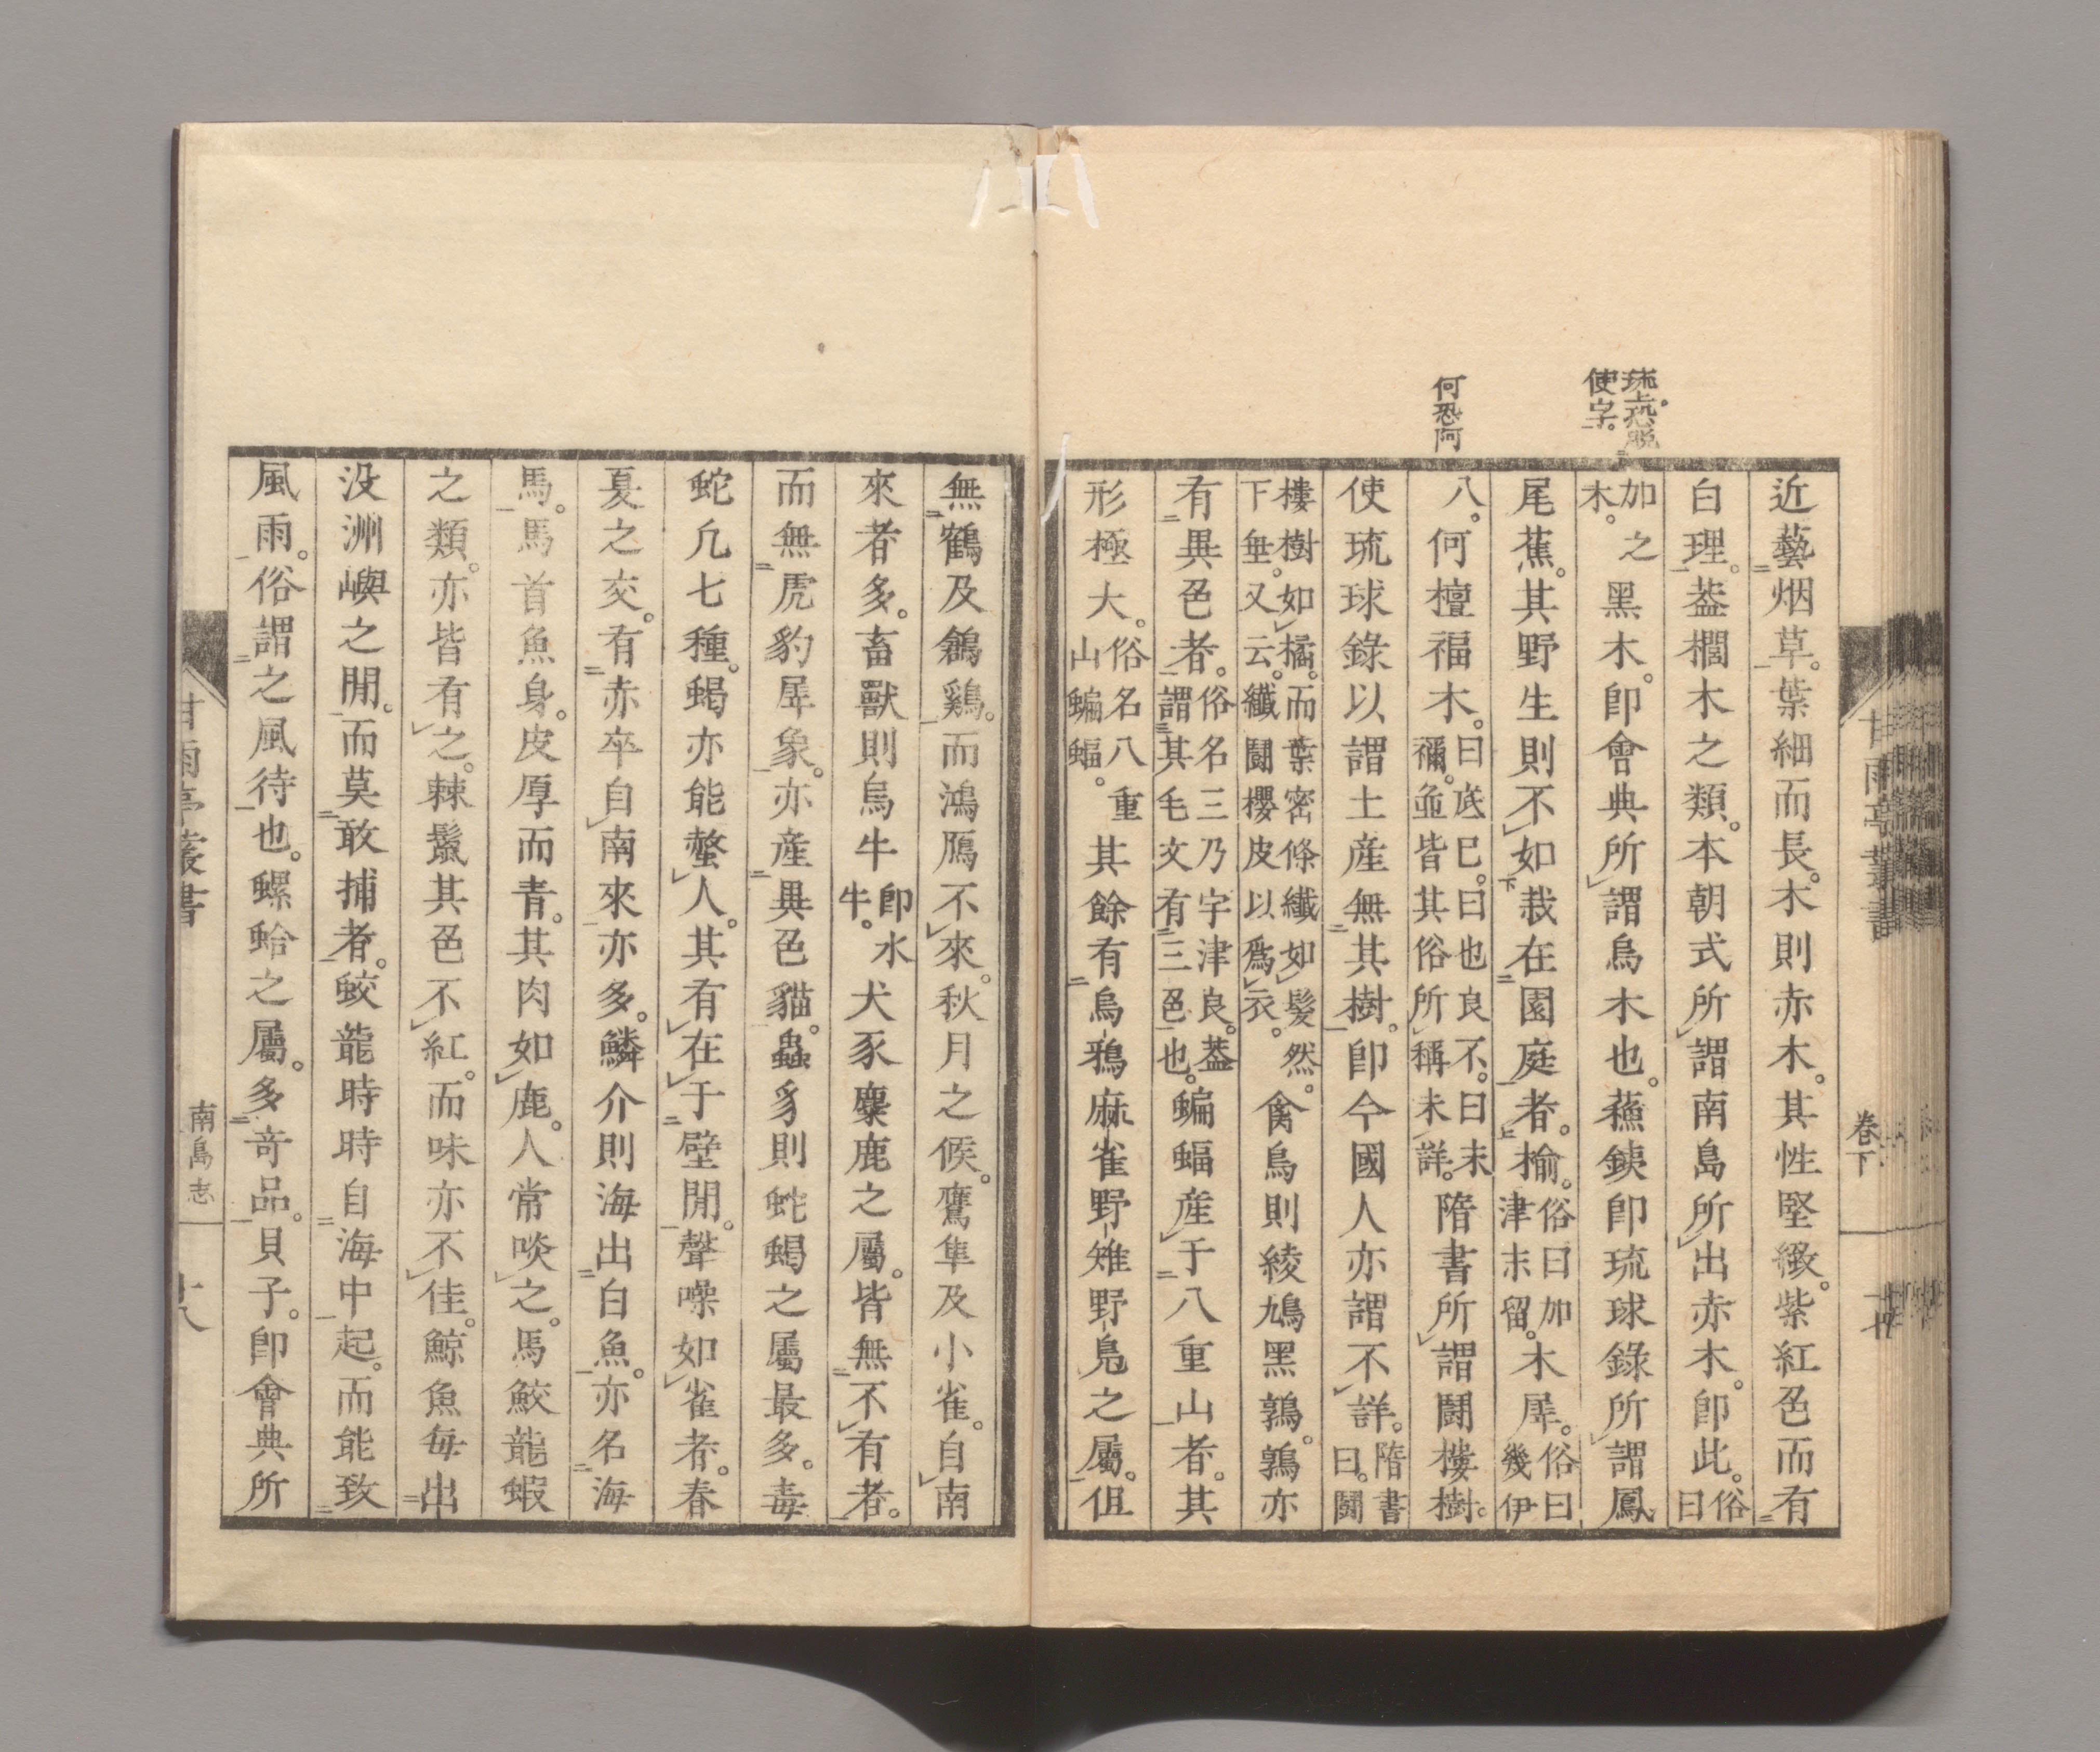 琉上恐脱
使字。
何恐阿
近藝烟草。葉細而長。木則赤木。其性堅緻。紫紅色而有
白理。葢櫚木之類。本朝式所謂南島所出赤木。即此。俗曰
加之木。黑木。即會典所謂烏木也。蘓鉄即琉球錄所謂鳳
尾蕉。其野生則不如栽在園庭者。榆。俗曰加津末留。木犀。俗曰幾伊
八。何檀福木。曰底巳。曰也良不。曰末禰。並皆其俗所稱未詳。隋書所謂鬪樓樹。
使琉球錄以謂土産無其樹。卽今國人亦謂不詳。隋書曰。鬪
樓樹如橘。而葉密條纎如髮。然下垂。又云。纎鬪樓皮以爲衣。禽鳥則綾鳩黑鶉。鶉亦
有異色者。俗名三乃字津良。葢謂其毛文有三色也。蝙蝠産于八重山者。其
形極大。俗名八重山蝙蝠。其餘有烏鴉麻雀野雉野鳧之屬。但
甘雨亭叢書
卷下
無鶴及鶬鷄。而鴻鴈不來。秋月之候。鷹隼及小雀。自南
來者多。畜獸則烏牛卽水牛。犬豕麋鹿之屬。皆無不有者。
而無虎豹犀象。亦産異色貓。蟲豸則蛇蝎之屬最多。毒
蛇凢七種。蝎亦能螫人。其有在于壁閒。聲噪如雀者。春
夏之交。有赤卒自南來亦多。鱗介則海出白魚。亦名海
馬。馬首魚身。皮厚而青。其肉如鹿。人常啖之。馬鮫龍蝦
之類。亦皆有之。棘鬛其色不紅。而味亦不佳。鯨魚每出
没洲嶼之閒。而莫敢捕者。鮫龍時時自海中起。而能致
風雨。俗謂之風待也。螺蛤之屬。多奇品。貝子。卽會典所
甘雨亭叢書
南島志
十八